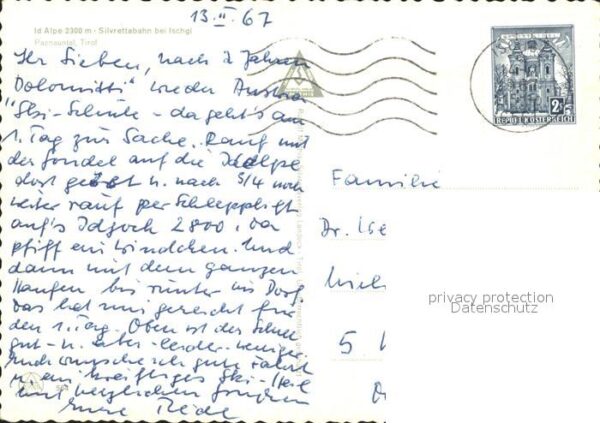 13.II.67
Id Alpe 2300 m · Silvrettabahn bei Ischgl
Paznauntal, Tirol
Ihr Lieben, nach 2 Jahren
Dolomitti" wieder Austria
"Ski-Schule - da geht's am
1. Tag zur Sache. Rauf mit
der Gondel auf die Idalpe
dort geübt u. nach 5/4 noch
weiter rauf per Schlepplift
auf's Idjoch 2800, da
pfiff ein Windchen. Und
dann mit dem ganzen
Haufen bis runter ins Dorf.
Das hat mir gereicht für
den 1. Tag. Oben ist der Schnee
gut - u. unten leider weniger.
Euch wünsche ich gute Fahrt
u. ein kräftiges Ski-Heil
mit herzlichen Grüßen
Eure
REPUBLIK ÖSTERREICH
Familie
Dr.
5
privacy protection
Datenschutz